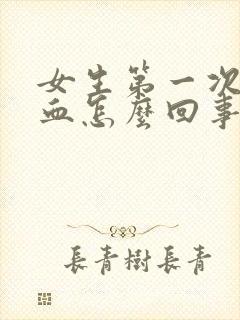 女生第一次
血怎麼回事
長青樹長青